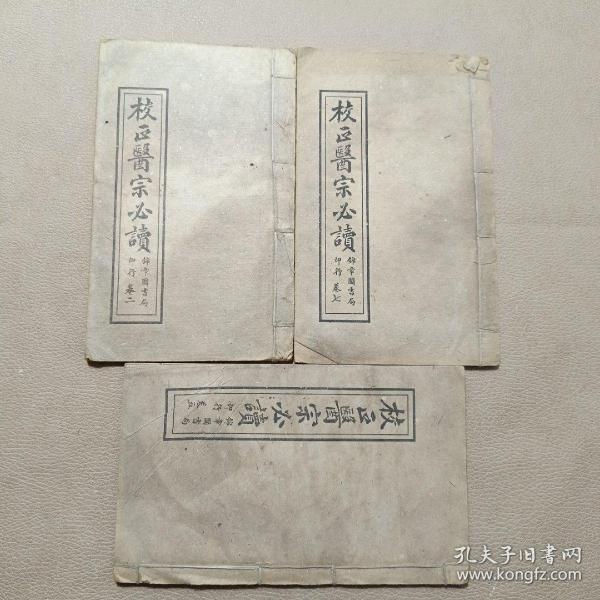 校正醫宗必讀
錦章圖書局
印行 卷二
校正醫宗必讀
錦章圖書局
印行 卷七
校正醫宗必讀
錦章圖書局
印行 卷五
孔夫子旧书网
www.kongfz.com